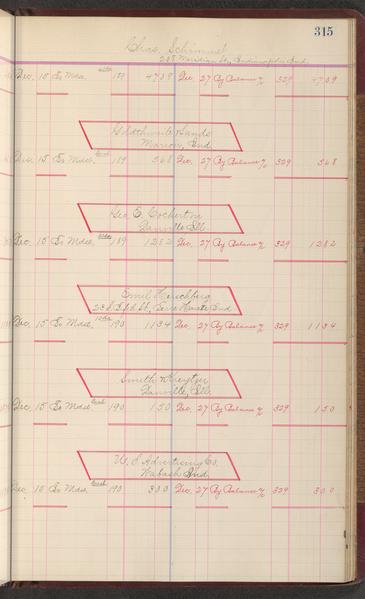 315
Chas. Schimmel
Meridian St, Indianapolis, Ind.
Dec. 15 To Mdse. 189 4709 Dec. 27 By Balance % 329 4709
Goldthwaite & Sands
Marion, Ind.
Dec. 15 To Mdse. 189 568 Dec. 27 By Balance % 329 568
Geo. E. Cockerton
Danville, Ill.
Dec. 15 To Mdse. 189 1282 Dec. 27 By Balance % 329 1282
Emil
St., Terre Haute, Ind.
Dec. 15 To Mdse. 190 1134 Dec. 27 By Balance % 329 1134
Smith
Danville, Ill.
Dec. 15 To Mdse. 190 150 Dec. 27 By Balance % 329 150
U. S. Advertising Co.
Wabash, Ind.
Dec. 15 To Mdse. 190 300 Dec. 27 By Balance % 329 300